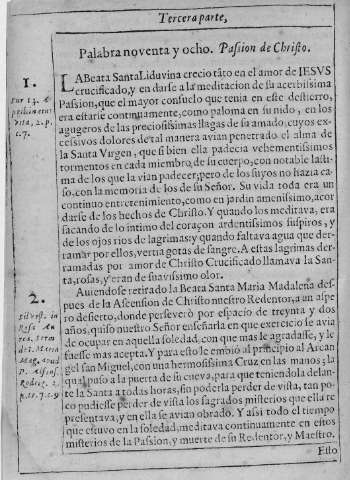 Tercera parte,
Palabra noventa y ocho. Passion de Christo.
1.
LA Beata Santa Liduvina crecio tãto en el amor de IESVS
crucificado, y en darse a la meditacion de su acerbissima
Passion, que el mayor consuelo que tenia en este destierro,
era estarse continuamente, como paloma en su nido, en los
agugeros de las preciosissimas llagas de su amado, cuyos ex-
cessivos dolores de tal manera avian penetrado el alma de
la Santa Virgen, que si bien ella padecia vehementissimos
tormentos en cada miembro de su cuerpo, con notable lasti-
ma de los que la vian padecer, pero de los suyos no hazia ca-
so, con la memoria de los de su Señor. Su vida toda era un
continuo entretenimiento, como en jardin amenissimo, acor
darse de los hechos de Christo. Y quando los meditava, era
sacando de lo intimo del coraçon ardentissimos suspiros, y
de los ojos rios de lagrimas: y quando faltava agua que der-
ramar por ellos, vertia gotas de sangre. A estas lagrimas der-
ramadas por amor de Christo Crucificado llamava la San-
ta, rosas, y eran de suavissimo olor.
2.
Aviendose retirado la Beata Santa Maria Madalena des-
pues de la Ascension de Christo nuestro Redentor, a un aspe
ro desierto, donde perseverò por espacio de treynta y dos
años, quiso nuestro Señor enseñarla en que exercicio se avia
de ocupar en aquella soledad, con que mas le agradasse, y le
fuesse mas acepta. Y para esto le embiò al principio al Arcan
gel san Miguel, con una hermosissima Cruz en las manos; la
qual puso a la puerta de su cueva, para que teniendola delan-
te la Santa a todas horas, sin poderla perder de vista, tan po-
co pudiesse perder de vista los sagrados misterios que ella re
presentava, y en ella se avian obrado. Y assi todo el tiempo
que estuvo en la soledad, meditava continuamente en estos
misterios de la Passion, y muerte de su Redentor, y Maestro.
Esto